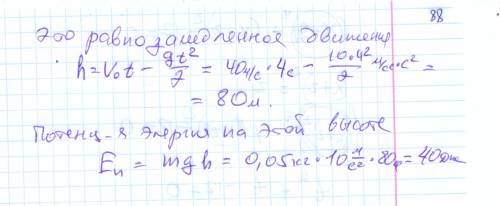 88
Это равнозамедленное движение
h = V₀t − gt²/2 = 40 м/с · 4с − 10·4²/2 м/с²·с² =
= 80м.
Потенц-я энергия на этой высоте
Eп = mgh = 0,05кг · 10 м/с² · 80м = 40Дж